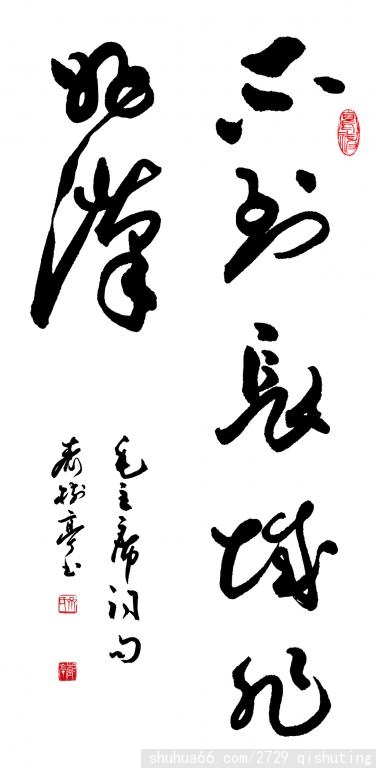 不到長城非
好漢
毛主席詞句
樹亭书
shuhua66.com/2729 qishuting